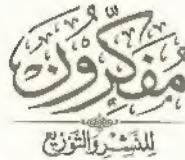 مُفَكِّرُون
لِلنَّشْرِ وَالتَّوْزِيعِ